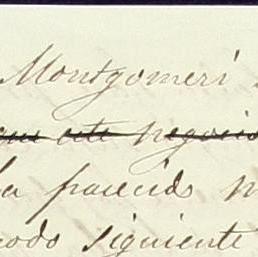 Montgomeri
que este negocio
ha parecido
modo siguiente